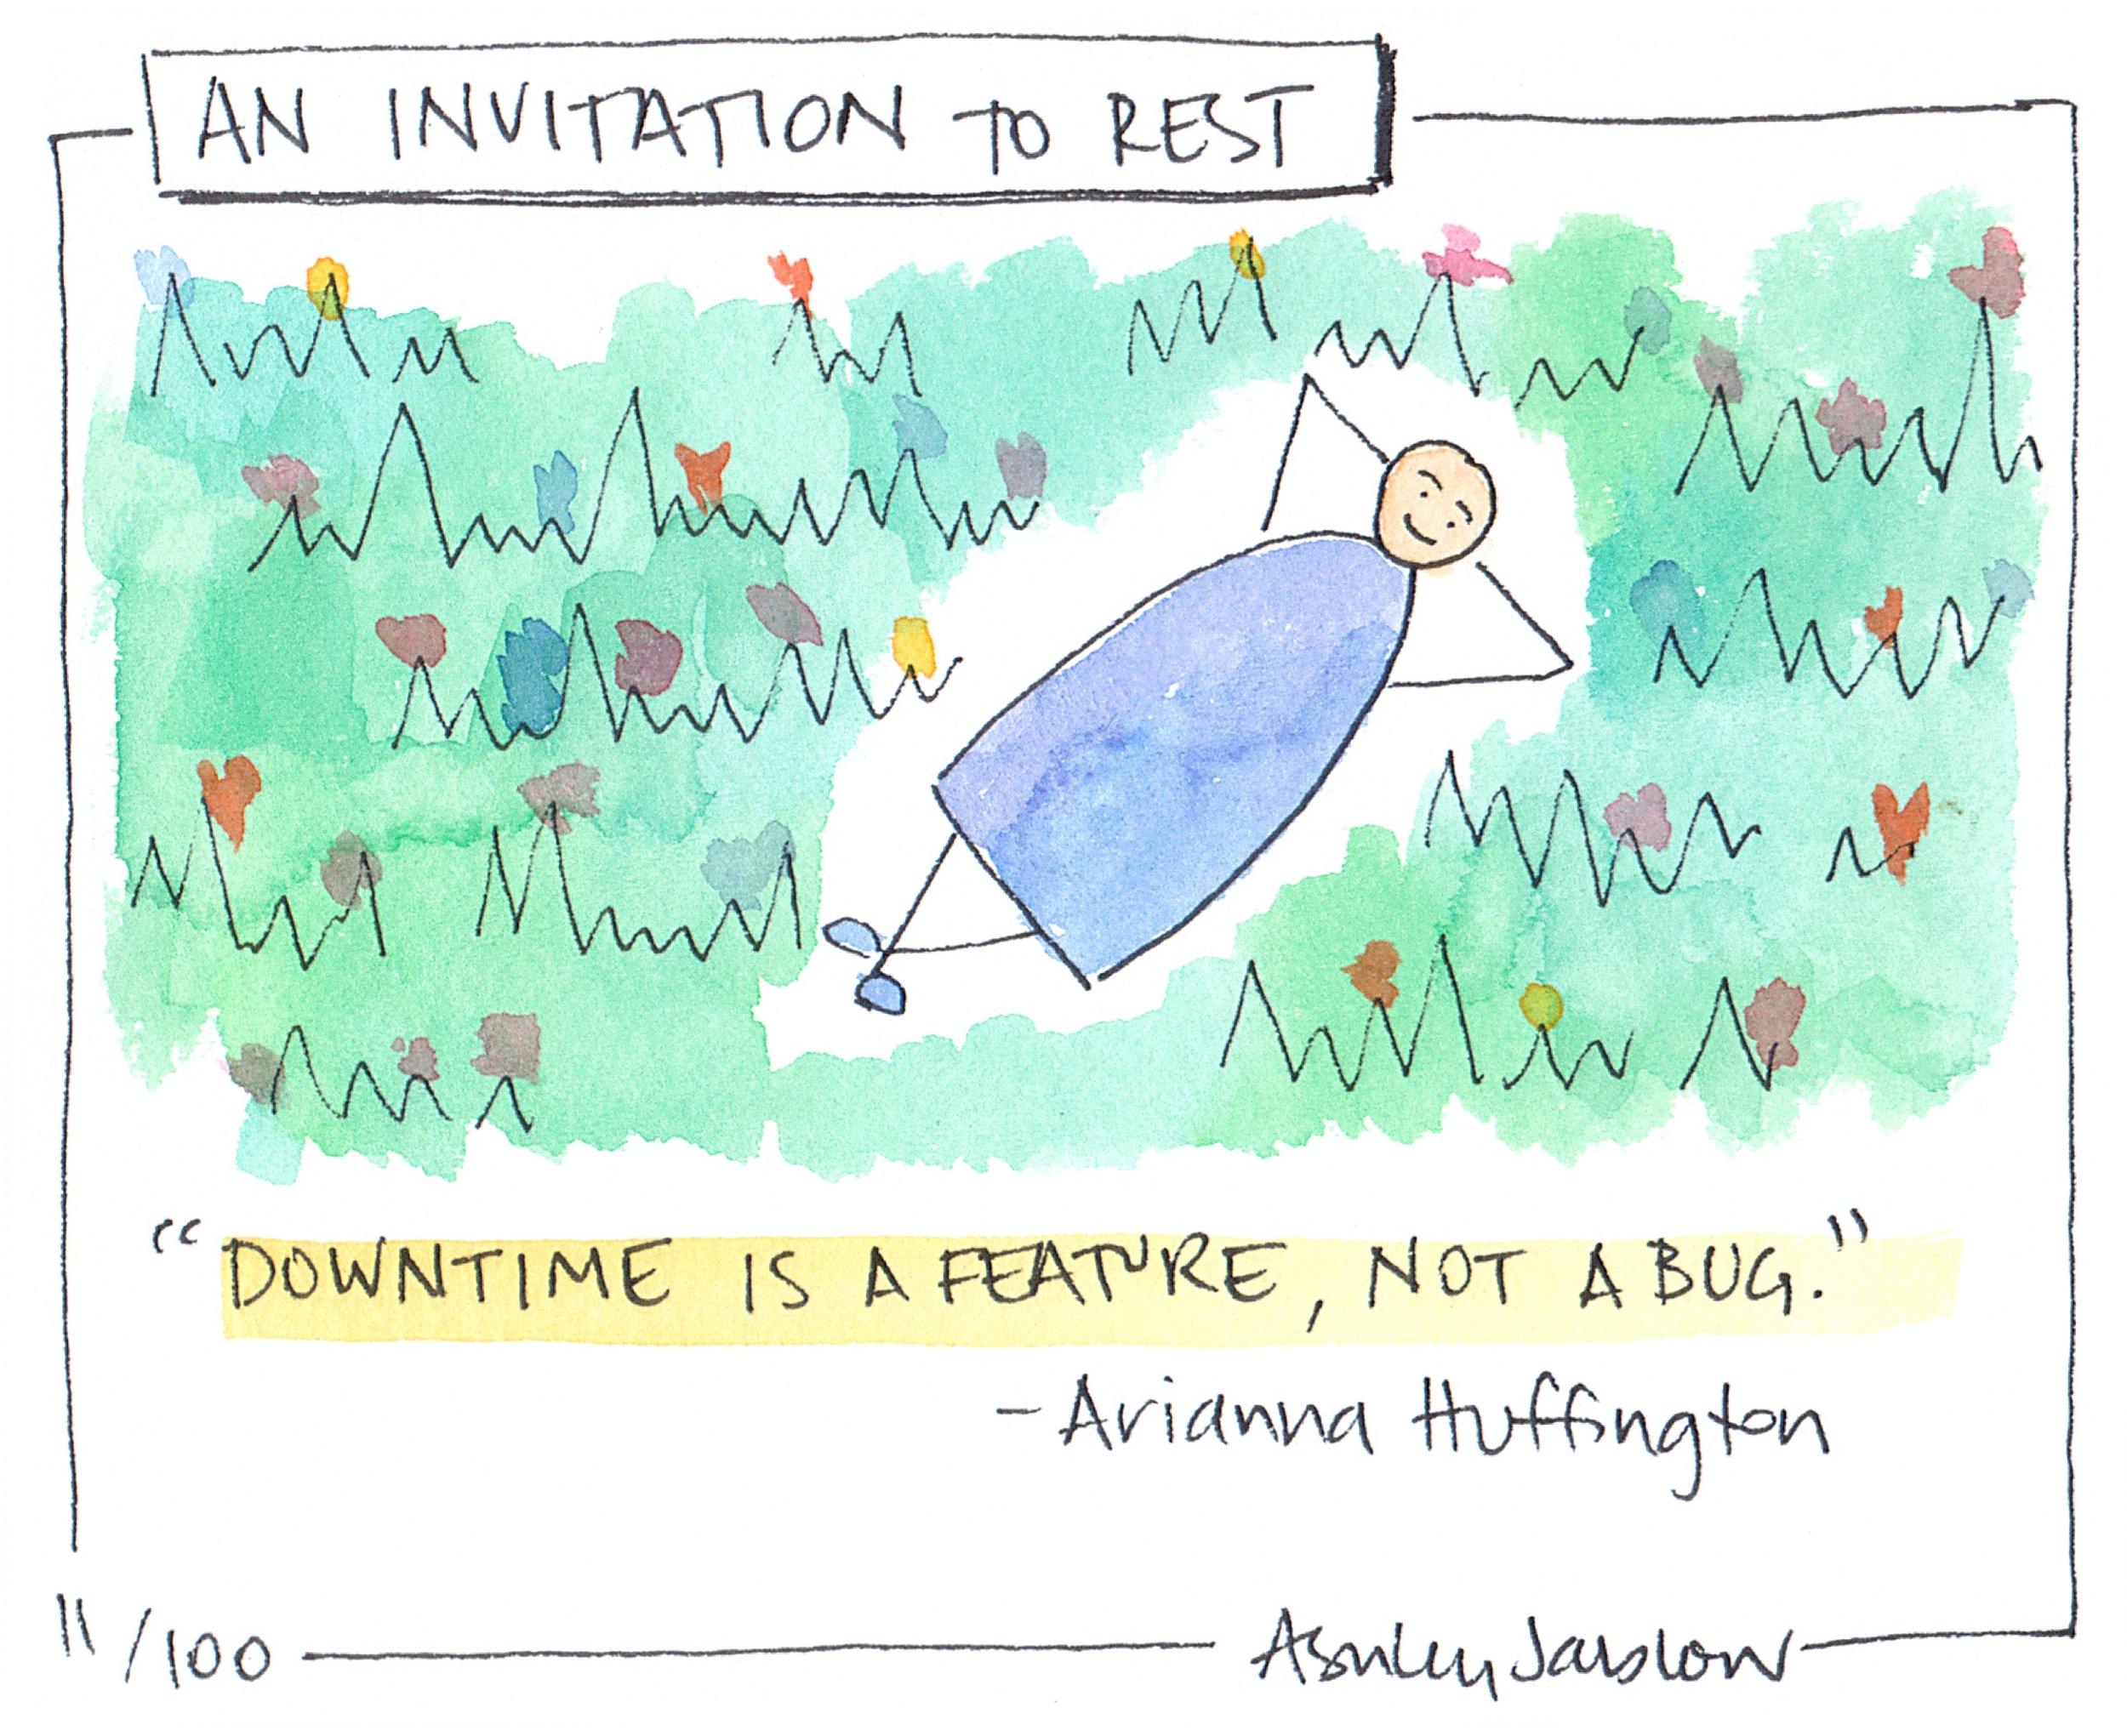 AN INVITATION TO REST
"DOWNTIME IS A FEATURE, NOT A BUG."
-Arianna Huffington
11/100
Ashley Jablow